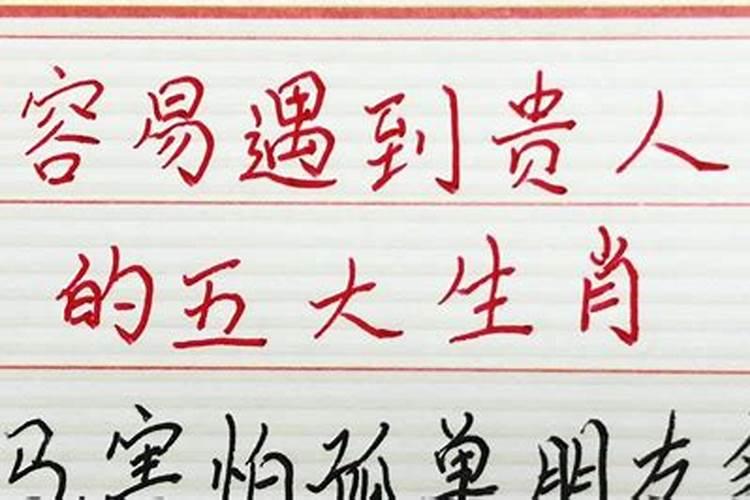 容易遇到贵人
的五大生肖
马害怕孤单朋友多